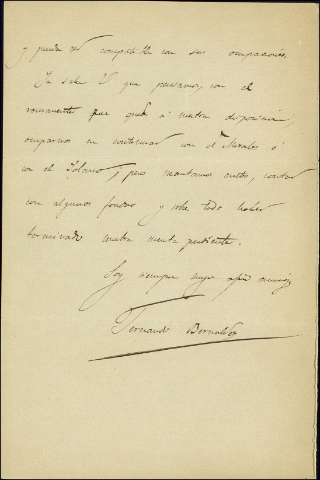 y pueda ser compatible con sus ocupaciones.
Ya sabe V que pensamos, con el
remanente que quede á nuestra disposición,
ocuparnos en continuar con el Morales ó
con el Solano, pero montamos antes, contar
con algunos fondos y sobre todo haber
terminado nuestra cuenta pendiente.
Soy siempre suyo afmo amigo
Fernando Bernaldez